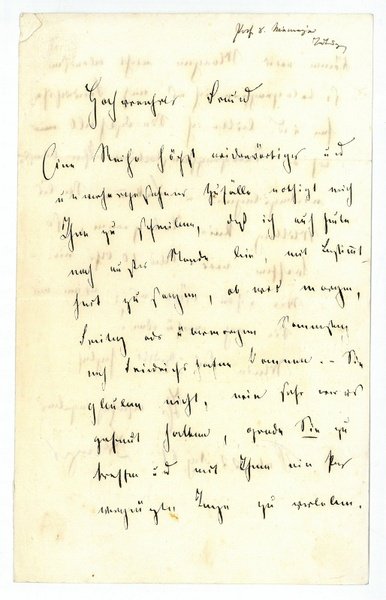 Prof. v. Niemeyer
Hochverehrter Freund
Eine Reihe höchst widerwärtiger und
unvorhergesehener Zufälle nöthigt mich
Ihnen zu schreiben, daß ich auch heute
noch außer Stande bin, mit Bestimmt-
heit zu sagen, ob wir morgen,
Freitag oder übermorgen Samstag,
nach Friedrichshafen kommen. – Sie
glauben nicht, wie sehr wir uns
gefreut hatten, gerade Sie zu
treffen und mit Ihnen ein Paar
vergnügte Tage zu verleben.